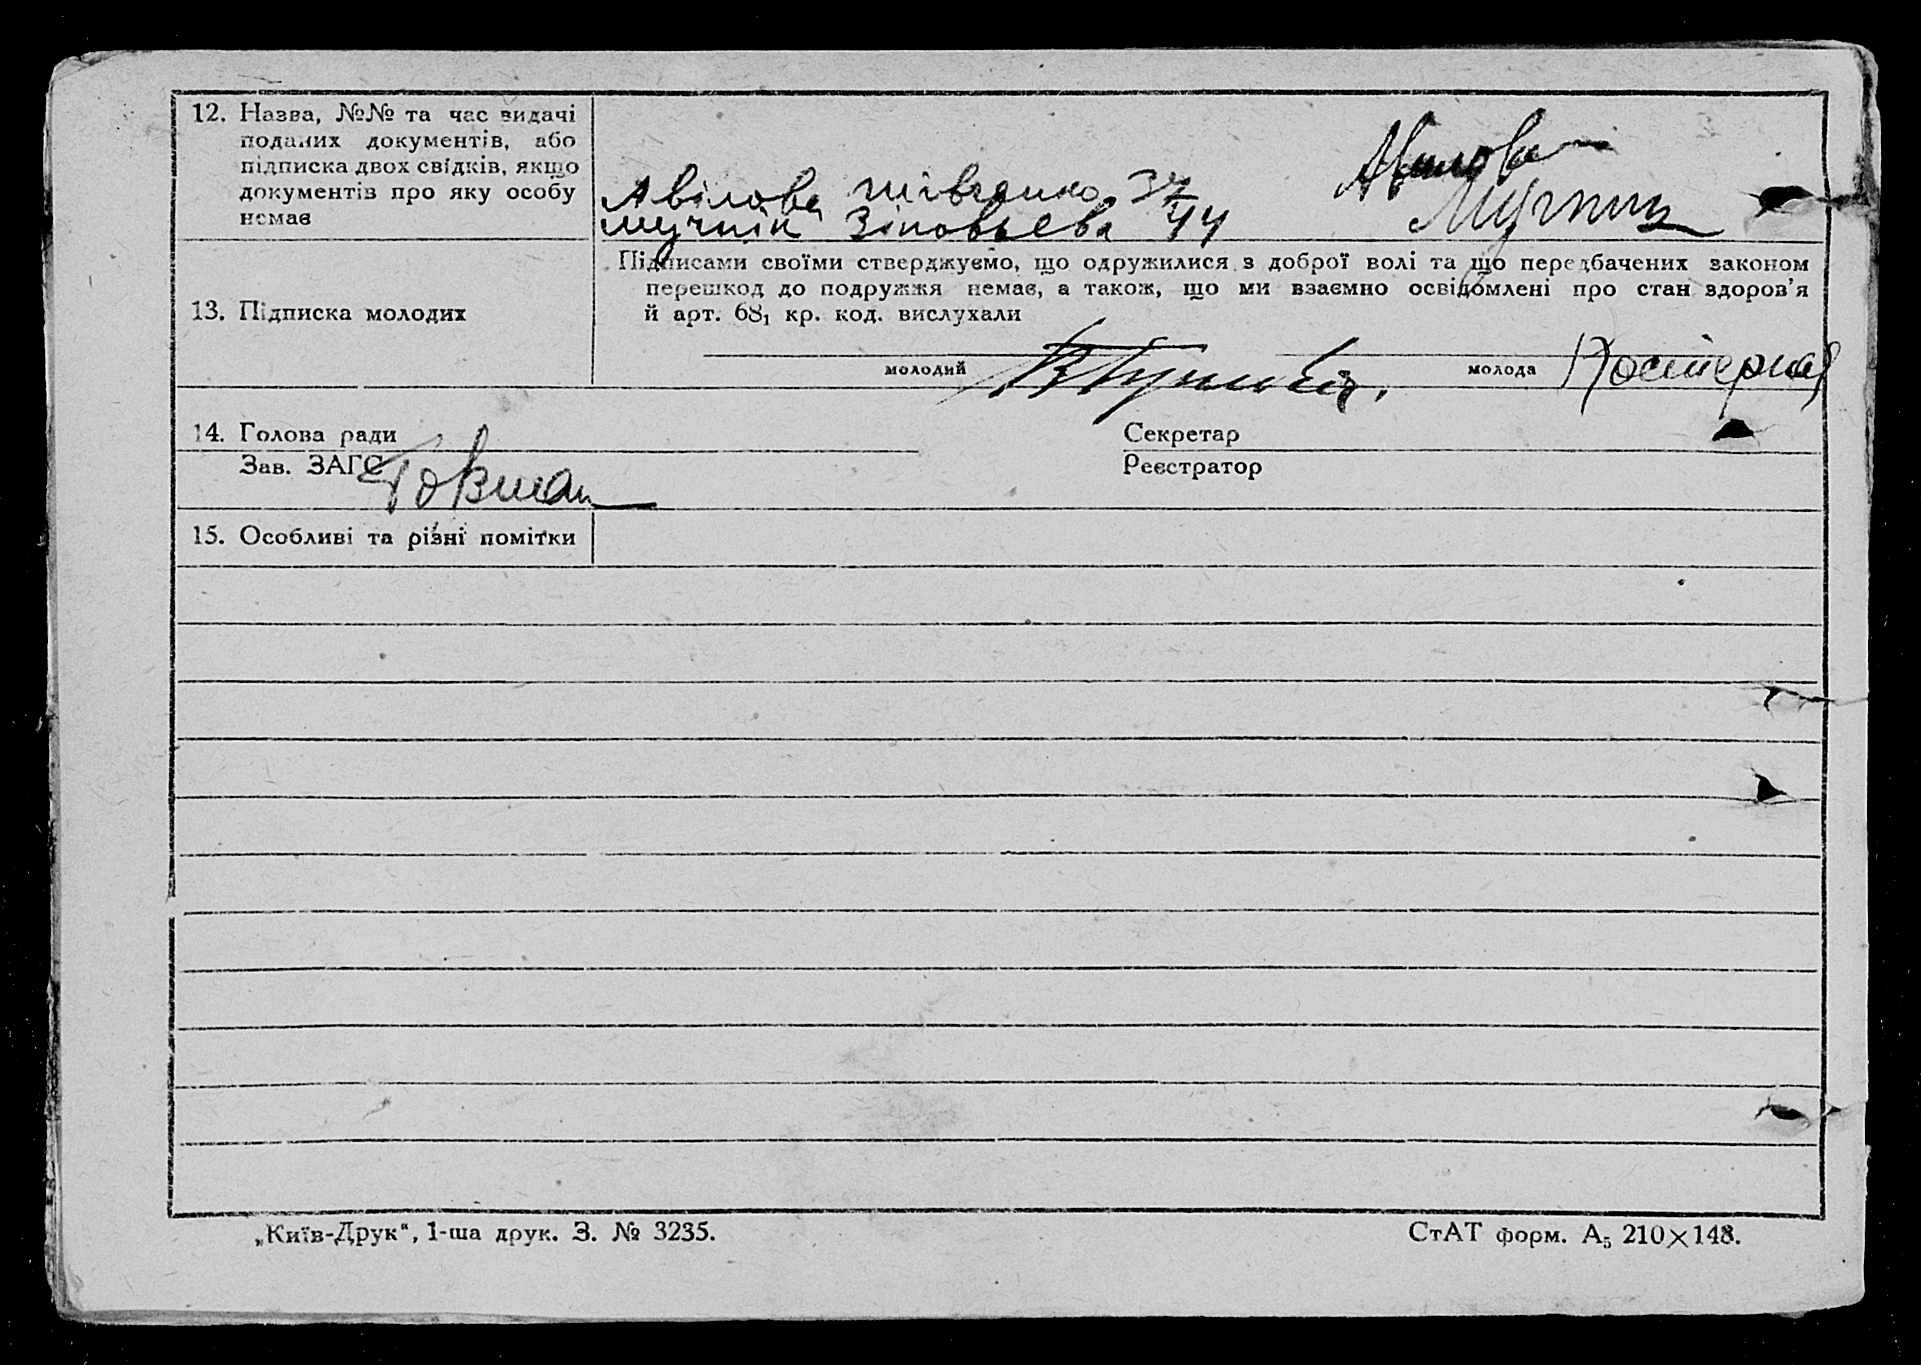 12. Назва, №№ та час видачі
поданих документів, або
підписка двох свідків, якщо
документів про яку особу
немає
Авілова Шівченко 37
Мучнік Зіновьева 44
Мучник
13. Підписка молодих
Підписами своїми стверджуємо, що одружилися з доброї волі та що передбачених законом
перешкод до подружжя немає, а також, що ми взаємно освідомлені про стан здоров'я
й арт. 68₁ кр. код. вислухали
молодий
молода
14. Голова ради
Секретар
Зав. ЗАГС
Реєстратор
15. Особливі та різні помітки
„Київ-Друк“, 1-ша друк. З. № 3235.
СтАТ форм. А₅ 210×148.